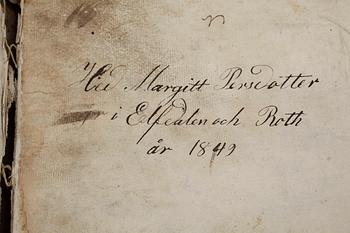 Hed Margitt Persdotter
i Elfdalen och Roth
år 1849